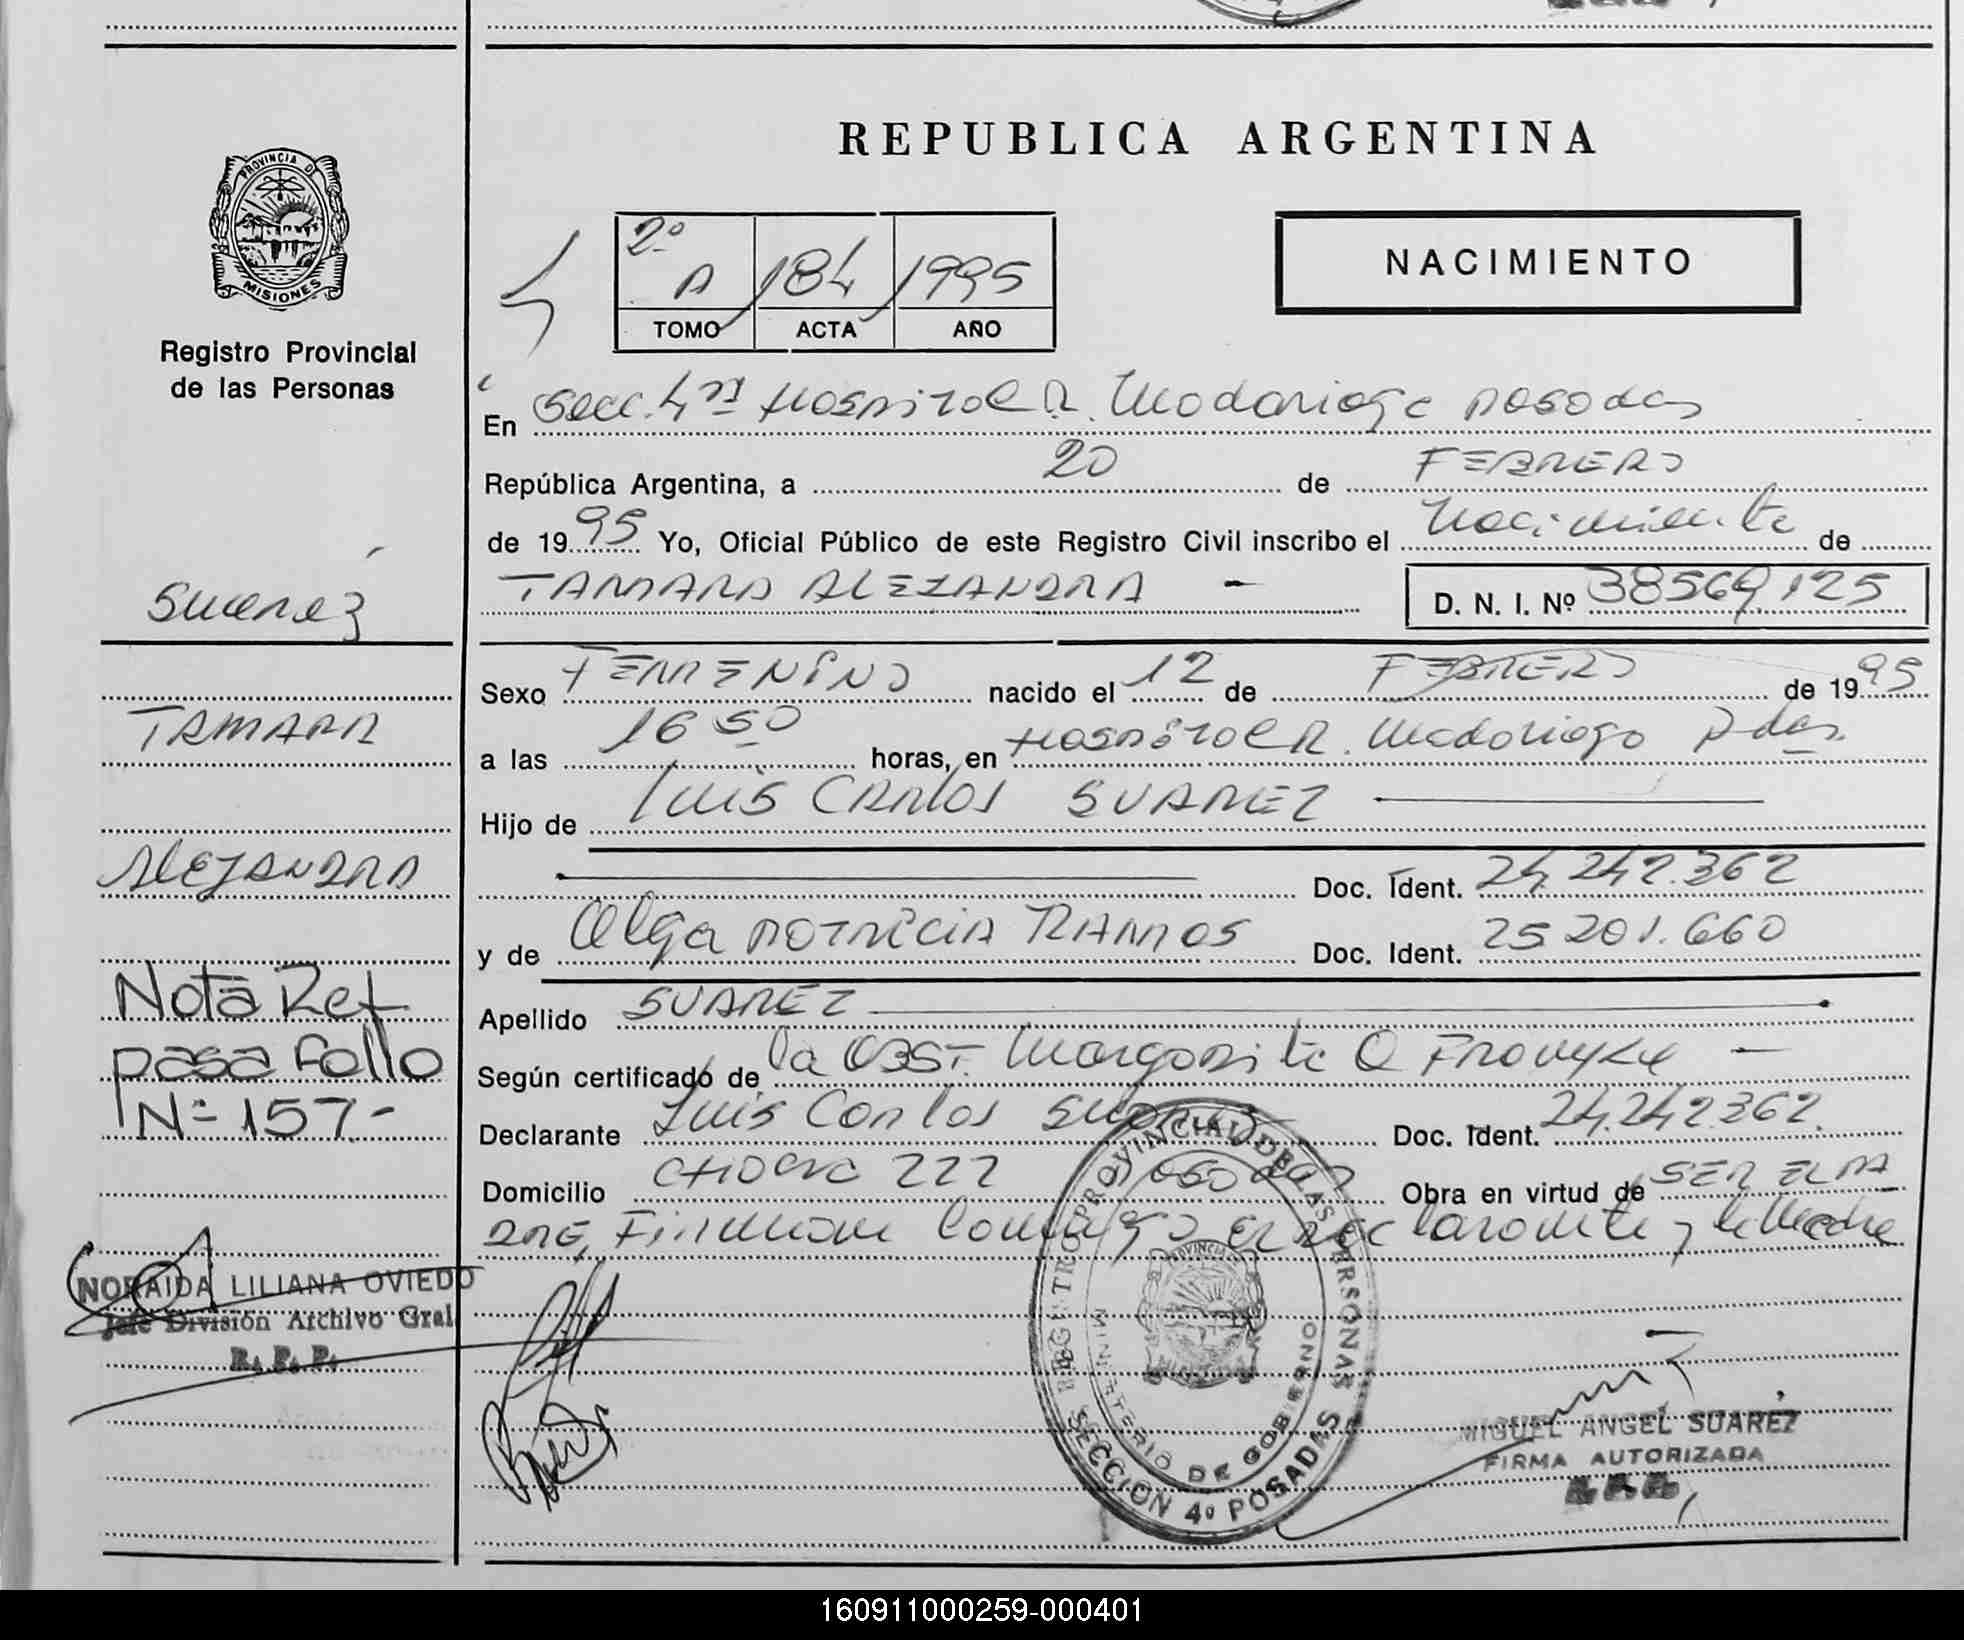 REPUBLICA ARGENTINA
PROVINCIA DE
MISIONES
Registro Provincial
de las Personas
2º A 184 1995
TOMO ACTA AÑO
NACIMIENTO
En Secc. 4ta Hospital R. Madariaga Posadas
República Argentina, a 20 de FEBRERO
de 1995 Yo, Oficial Público de este Registro Civil inscribo el Nacimiento de
TAMARA ALEJANDRA - D. N. I. Nº 38569.125
Suarez
Sexo FEMENINO nacido el 12 de FEBRERO de 1995
TAMARA
a las 16 50 horas, en Hospital R. Madariaga Pdas.
Hijo de Luis Carlos SUAREZ
ALEJANDRA
Doc. Ident. 24.242.362
y de Olga PATRICIA RAMOS Doc. Ident. 25.201.660
Nota Ref
pasa folio
Nº 157-
Apellido SUAREZ
Según certificado de la OBST. Margarita Q
Declarante Luis Carlos Suarez Doc. Ident. 24.242.362.
Domicilio 222 Posadas Obra en virtud de SER EL PA
DRE, Firman conmigo el declarante y la Madre
NORAIDA LILIANA OVIEDO
Jefe División Archivo Gral
R. P. P.
REGISTRO PROVINCIAL DE LAS PERSONAS
MINISTERIO DE GOBIERNO
PROVINCIA
SECCION 4º POSADAS
MIGUEL ANGEL SUAREZ
FIRMA AUTORIZADA
R.P.P.
160911000259-000401